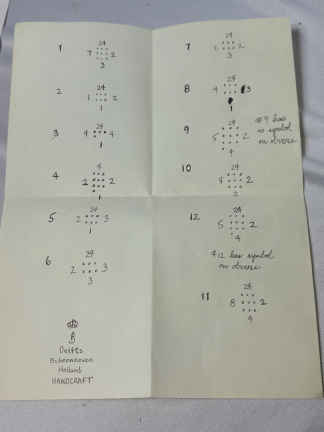 1
24
2
3
2
24
1 2
1
3
4 4
1
4
2 2
1
5
24
2 3
1
6
24
2 3
3
B
Delft
Schoonhoven
Holland
HANDCRAFT
7
24
2
3
8
24
4 3
1
9
24
5 2
4
#9 has
no symbol
on obverse
10
24
4 2
2
12
24
5 2
4
#12 has symbol
on obverse
11
24
8 2
4